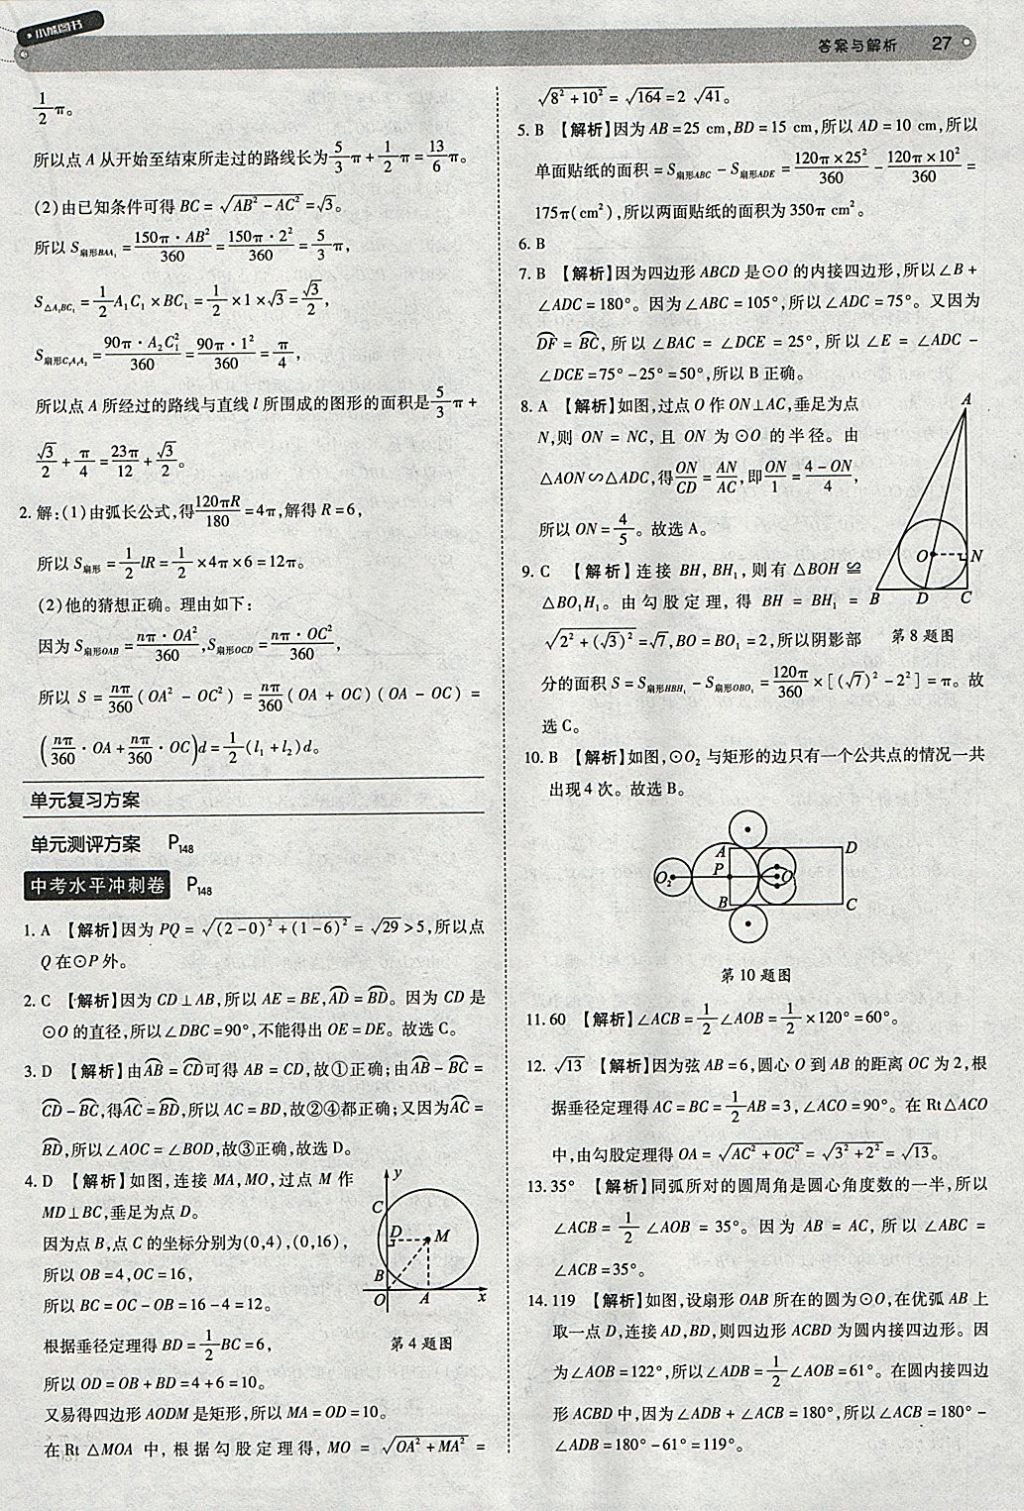 小熊图书
答案与解析 27
$\frac{1}{2}$π。
所以点 A 从开始至结束所走过的路线长为$\frac{5}{3}$π+$\frac{1}{2}$π=$\frac{13}{6}$π。
(2)由已知条件可得 BC=$\sqrt{AB^2-AC^2}$=$\sqrt{3}$。
所以 $S_{扇形BAA_1}$=$\frac{150π·AB^2}{360}$=$\frac{150π·2^2}{360}$=$\frac{5}{3}$π,
$S_{△A_1BC_1}$=$\frac{1}{2}$$A_1C_1$×$BC_1$=$\frac{1}{2}$×1×$\sqrt{3}$=$\frac{\sqrt{3}}{2}$,
$S_{扇形C_1A_1A_2}$=$\frac{90π·A_2C_1^2}{360}$=$\frac{90π·1^2}{360}$=$\frac{π}{4}$,
所以点 A 所经过的路线与直线 l 所围成的图形的面积是$\frac{5}{3}$π+
$\frac{\sqrt{3}}{2}$+$\frac{π}{4}$=$\frac{23π}{12}$+$\frac{\sqrt{3}}{2}$。
2. 解:(1)由弧长公式,得$\frac{120πR}{180}$=4π,解得 R=6,
所以 $S_{扇形}$=$\frac{1}{2}$lR=$\frac{1}{2}$×4π×6=12π。
(2)他的猜想正确。理由如下:
因为 $S_{扇形OAB}$=$\frac{nπ·OA^2}{360}$,$S_{扇形OCD}$=$\frac{nπ·OC^2}{360}$,
所以 S=$\frac{nπ}{360}$(OA²-OC²)=$\frac{nπ}{360}$(OA+OC)(OA-OC)=
($\frac{nπ}{360}$·OA+$\frac{nπ}{360}$·OC)d=$\frac{1}{2}$($l_1$+$l_2$)d。
单元复习方案
单元测评方案 P₁₄₈
中考水平冲刺卷 P₁₄₈
1. A 【解析】因为 PQ=$\sqrt{(2-0)^2+(1-6)^2}$=$\sqrt{29}$>5,所以点
Q 在⊙P 外。
2. C 【解析】因为 CD⊥AB,所以 AE=BE,$\overset{\frown}{AD}$=$\overset{\frown}{BD}$。因为 CD 是
⊙O 的直径,所以∠DBC=90°,不能得出 OE=DE。故选 C。
3. D 【解析】由$\overset{\frown}{AB}$=$\overset{\frown}{CD}$可得 AB=CD,故①正确;由$\overset{\frown}{AB}$-$\overset{\frown}{BC}$=
$\overset{\frown}{CD}$-$\overset{\frown}{BC}$,得$\overset{\frown}{AC}$=$\overset{\frown}{BD}$,所以 AC=BD,故②④都正确;又因为$\overset{\frown}{AC}$=
$\overset{\frown}{BD}$,所以∠AOC=∠BOD,故③正确,故选 D。
4. D 【解析】如图,连接 MA,MO,过点 M 作
MD⊥BC,垂足为点 D。
因为点 B,点 C 的坐标分别为(0,4),(0,16),
所以 OB=4,OC=16,
所以 BC=OC-OB=16-4=12。
根据垂径定理得 BD=$\frac{1}{2}$BC=6,
所以 OD=OB+BD=4+6=10。
又易得四边形 AODM 是矩形,所以 MA=OD=10。
在 Rt△MOA 中,根据勾股定理得,MO=$\sqrt{OA^2+MA^2}$=
y
C
D
M
B
O
A
x
第 4 题图
$\sqrt{8^2+10^2}$=$\sqrt{164}$=2$\sqrt{41}$。
5. B 【解析】因为 AB=25 cm,BD=15 cm,所以 AD=10 cm,所以
单面贴纸的面积=$S_{扇形ABC}$-$S_{扇形ADE}$=$\frac{120π×25^2}{360}$-$\frac{120π×10^2}{360}$=
175π(cm²),所以两面贴纸的面积为 350π cm²。
6. B
7. B 【解析】因为四边形 ABCD 是⊙O 的内接四边形,所以∠B+
∠ADC=180°。因为∠ABC=105°,所以∠ADC=75°。又因为
$\overset{\frown}{DF}$=$\overset{\frown}{BC}$,所以∠BAC=∠DCE=25°,所以∠E=∠ADC-
∠DCE=75°-25°=50°,所以 B 正确。
8. A 【解析】如图,过点 O 作 ON⊥AC,垂足为点
N,则 ON=NC,且 ON 为⊙O 的半径。由
△AON∽△ADC,得$\frac{ON}{CD}$=$\frac{AN}{AC}$,即$\frac{ON}{1}$=$\frac{4-ON}{4}$,
所以 ON=$\frac{4}{5}$。故选 A。
A
O
N
B
D
C
第 8 题图
9. C 【解析】连接 BH,BH₁,则有△BOH≌
△BO₁H₁。由勾股定理,得 BH=BH₁=
$\sqrt{2^2+(\sqrt{3})^2}$=$\sqrt{7}$,BO=BO₁=2,所以阴影部
分的面积 S=$S_{扇形HBH_1}$-$S_{扇形OBO_1}$=$\frac{120π}{360}$×[($\sqrt{7}$)²-2²]=π。故
选 C。
10. B 【解析】如图,⊙O₂ 与矩形的边只有一个公共点的情况一共
出现 4 次。故选 B。
A
D
O₂
P
O
B
C
第 10 题图
11. 60 【解析】∠ACB=$\frac{1}{2}$∠AOB=$\frac{1}{2}$×120°=60°。
12. $\sqrt{13}$ 【解析】因为弦 AB=6,圆心 O 到 AB 的距离 OC 为 2,根
据垂径定理得 AC=BC=$\frac{1}{2}$AB=3,∠ACO=90°。在 Rt△ACO
中,由勾股定理得 OA=$\sqrt{AC^2+OC^2}$=$\sqrt{3^2+2^2}$=$\sqrt{13}$。
13. 35° 【解析】同弧所对的圆周角是圆心角度数的一半,所以
∠ACB=$\frac{1}{2}$∠AOB=35°。因为 AB=AC,所以∠ABC=
∠ACB=35°。
14. 119 【解析】如图,设扇形 OAB 所在的圆为⊙O,在优弧 AB 上
取一点 D,连接 AD,BD,则四边形 ACBD 为圆内接四边形。因
为∠AOB=122°,所以∠ADB=$\frac{1}{2}$∠AOB=61°。在圆内接四边
形 ACBD 中,因为∠ADB+∠ACB=180°,所以∠ACB=180°-
∠ADB=180°-61°=119°。